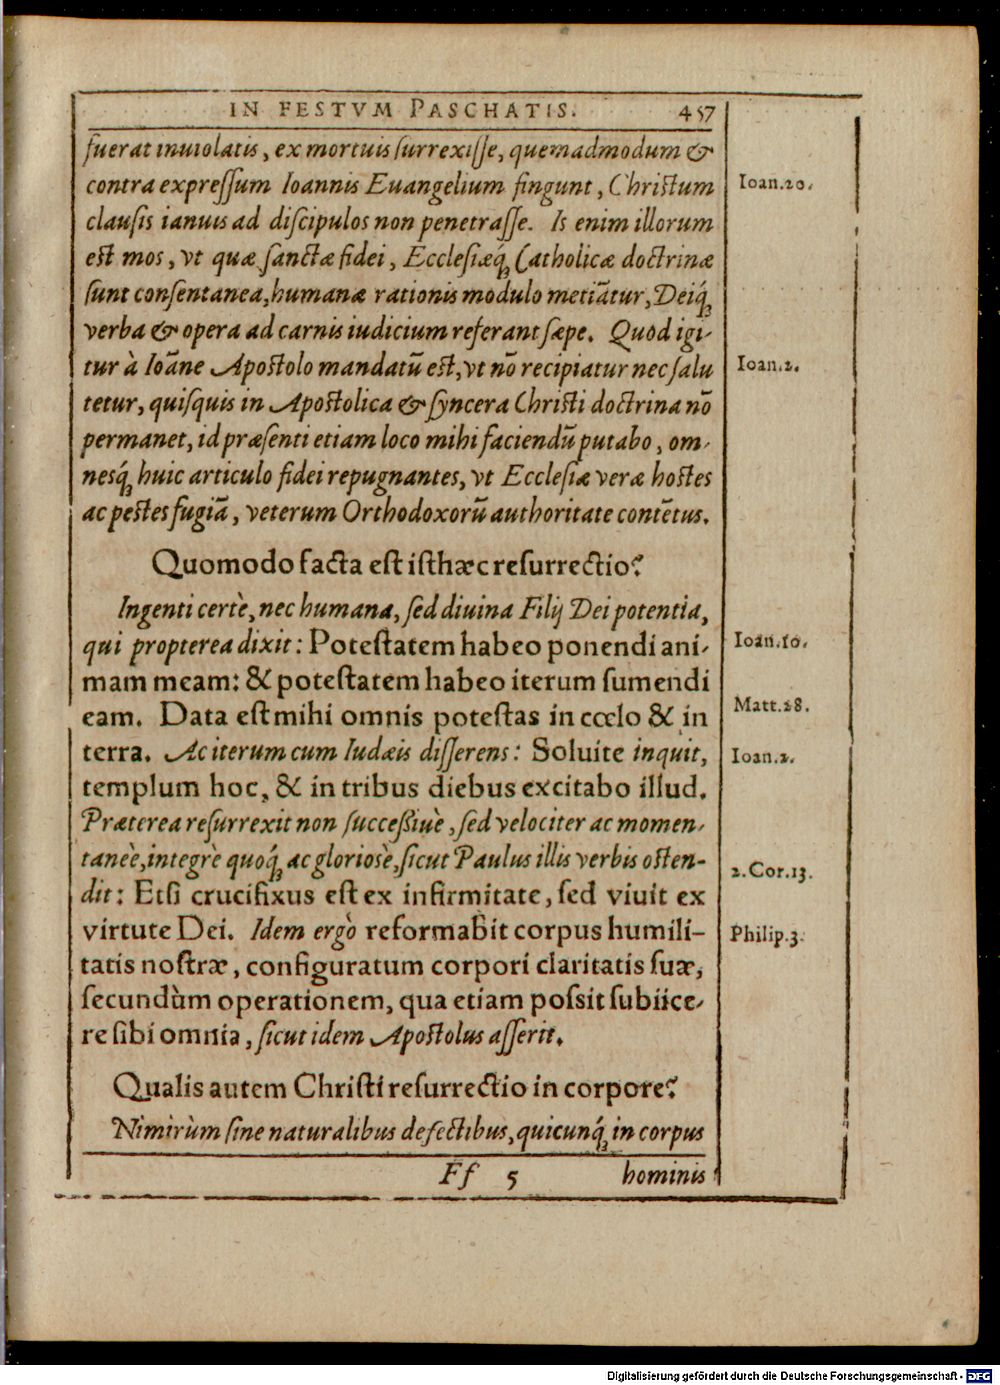 IN FESTVM PASCHATIS. 457
fuerat inuiolatis, ex mortuis ſurrexiſſe, quemadmodum &
contra expreſſum Ioannis Euangelium fingunt, Chriſtum
clauſis ianuis ad diſcipulos non penetraſſe. Is enim illorum
eſt mos, vt quæ ſanctæ fidei, Eccleſiæq́ꝫ Catholicæ doctrinæ
ſunt conſentanea, humanæ rationis modulo metiātur, Deiq́ꝫ
verba & opera ad carnis iudicium referant ſæpe. Quod igi-
tur à Ioāne Apoſtolo mandatū eſt, vt nō recipiatur nec ſalu
tetur, quiſquis in Apoſtolica & ſyncera Chriſti doctrina nō
permanet, id præſenti etiam loco mihi faciendū putabo, om-
nesq́ꝫ huic articulo fidei repugnantes, vt Eccleſiæ veræ hoſtes
ac peſtes fugiā, veterum Orthodoxorū authoritate contētus.
Quomodo facta eſt iſthæc reſurrectio?
Ingenti certè, nec humana, ſed diuina Filij Dei potentia,
qui propterea dixit: Poteſtatem habeo ponendi ani-
mam meam: & poteſtatem habeo iterum ſumendi
eam. Data eſt mihi omnis poteſtas in cœlo & in
terra. Ac iterum cum Iudæis diſſerens: Soluite inquit,
templum hoc, & in tribus diebus excitabo illud.
Præterea reſurrexit non ſucceßiuè, ſed velociter ac momen-
taneè, integrè quoq́ꝫ ac glorioſè, ſicut Paulus illis verbis oſten-
dit: Etſi crucifixus eſt ex infirmitate, ſed viuit ex
virtute Dei. Idem ergò reformabit corpus humili-
tatis noſtræ, configuratum corpori claritatis ſuæ,
ſecundùm operationem, qua etiam poſsit ſubiice-
re ſibi omnia, ſicut idem Apoſtolus aſſerit.
Qualis autem Chriſti reſurrectio in corpore?
Nimirùm ſine naturalibus defectibus, quicunq́ꝫ in corpus
Ff 5 hominis
Ioan.20.
Ioan.2.
Ioan.10.
Matt.28.
Ioan.2.
2.Cor.13.
Philip.3.
Digitalisierung gefördert durch die Deutsche Forschungsgemeinschaft - DFG